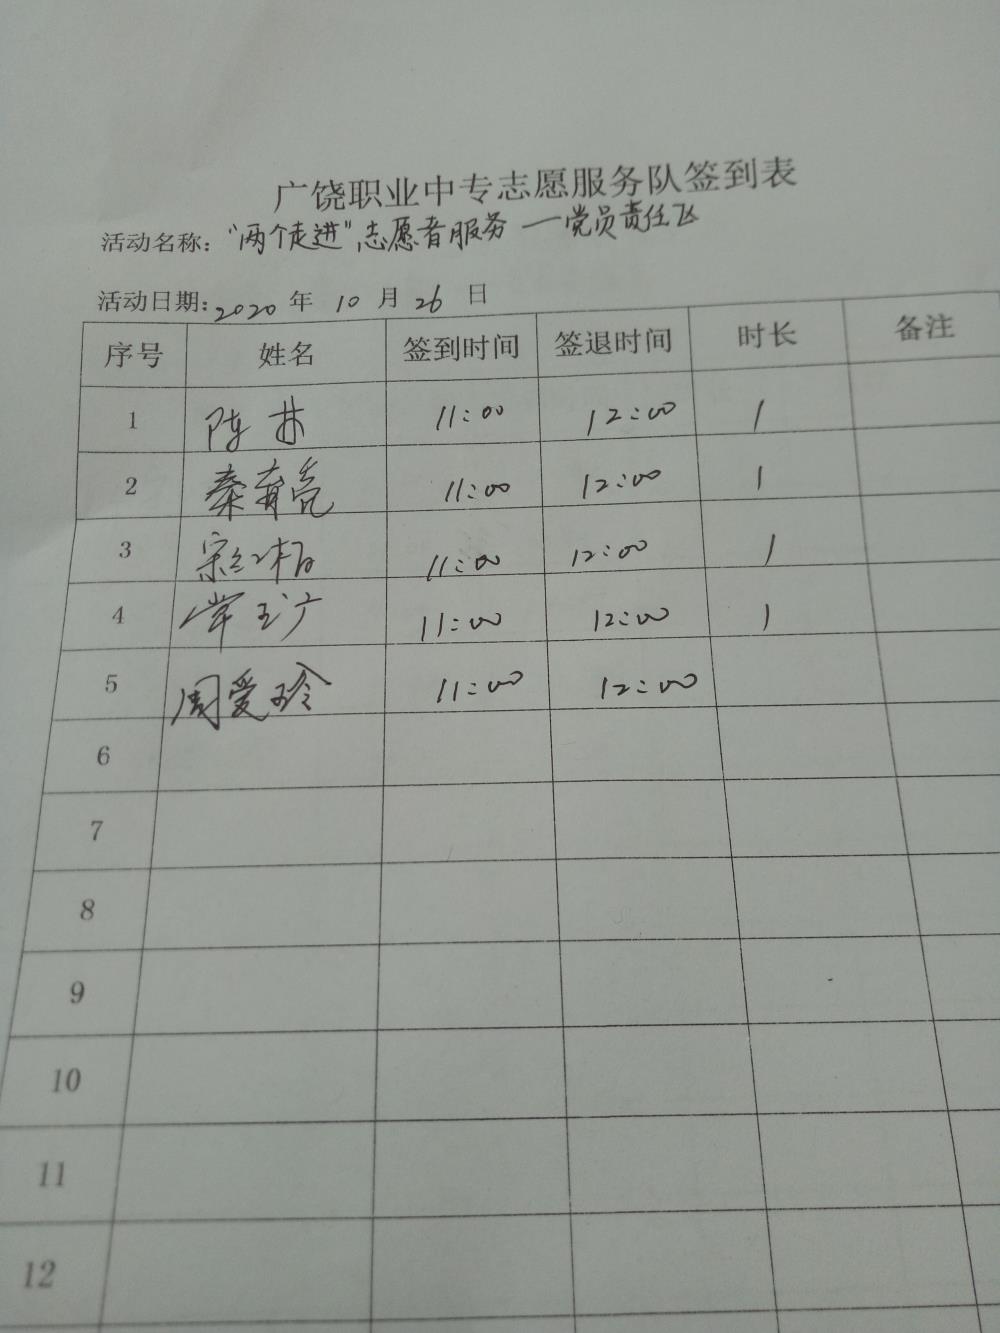 广饶职业中专志愿服务队签到表
活动名称：“两个走进”志愿者服务 一党员责任飞
活动日期：2020 年 10 月 26 日
序号 姓名 签到时间 签退时间 时长 备注
1 陈林 11:00 12:00 1
2 秦育亮 11:00 12:00 1
3 11:00 12:00 1
4 常玉广 11:00 12:00 1
5 周爱玲 11:00 12:00
6
7
8
9
10
11
12